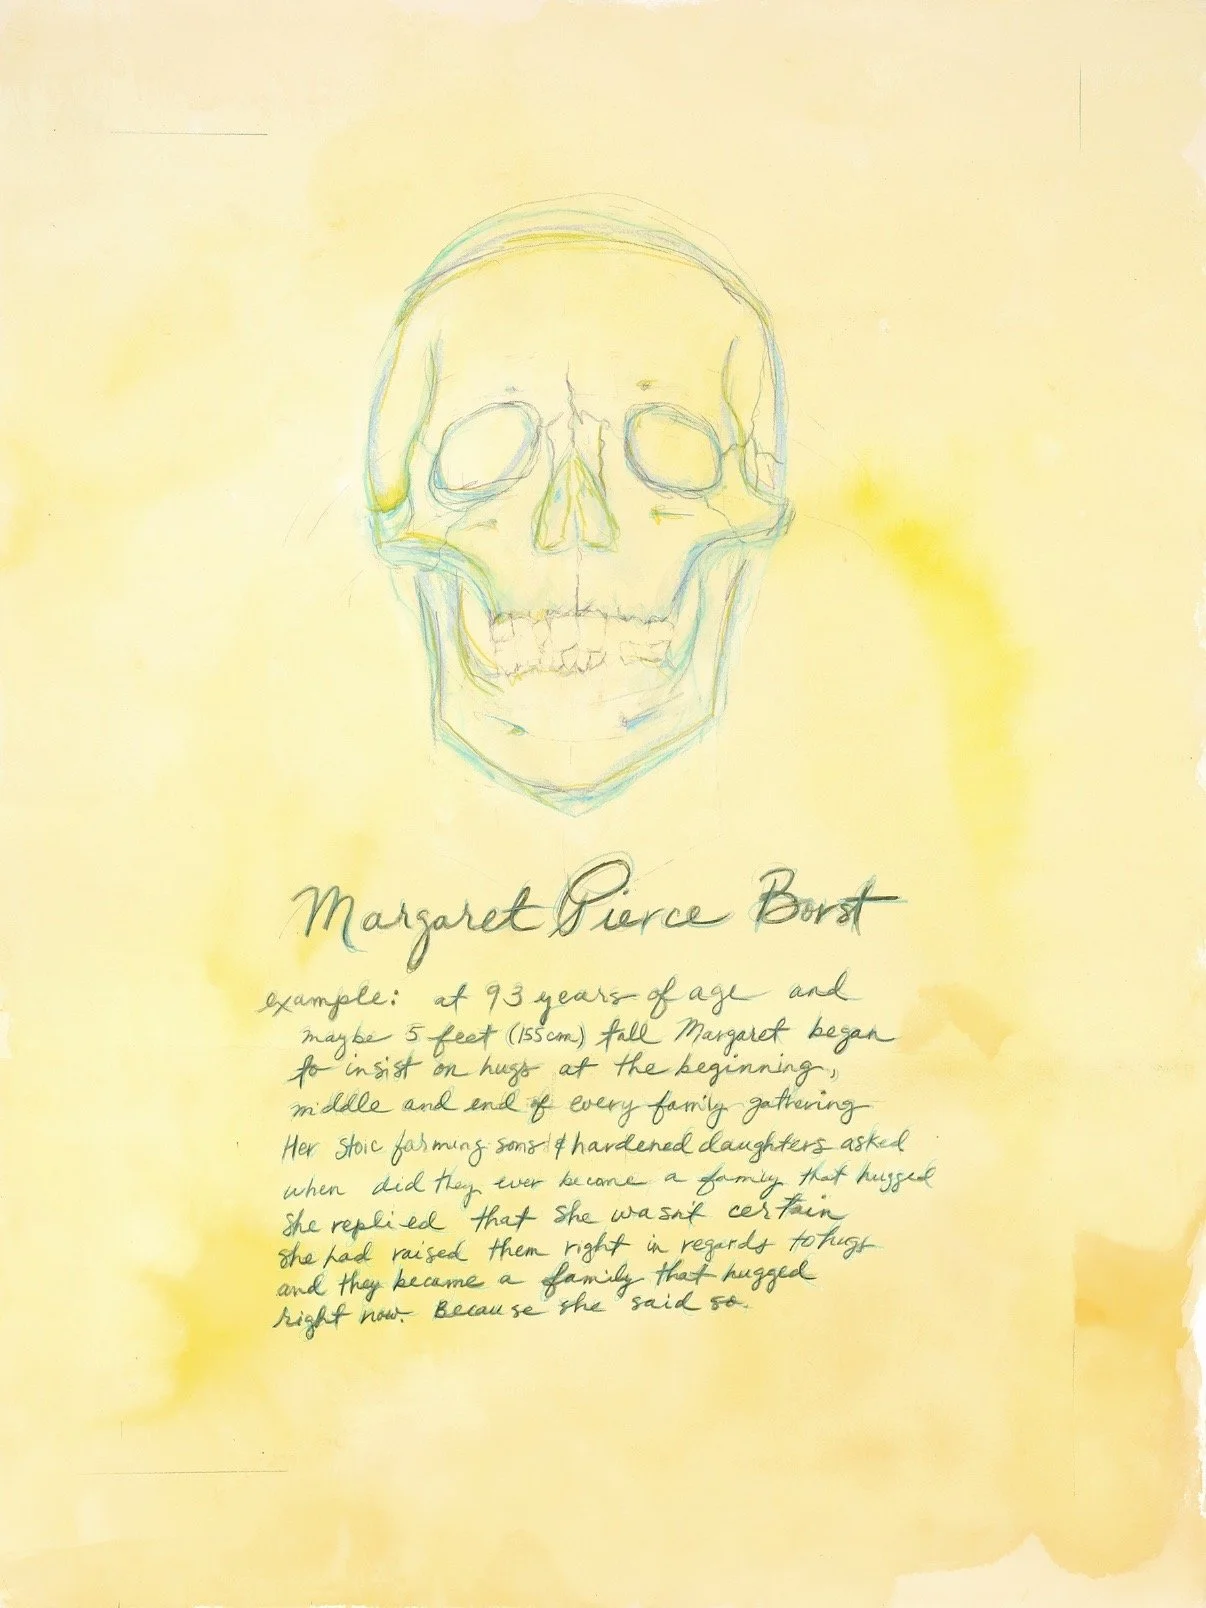 Margaret Pierce Borst
example: at 93 years of age and
maybe 5 feet (155cm) tall Margaret began
to insist on hugs at the beginning,
middle and end of every family gathering
Her stoic farming sons & hardened daughters asked
when did they ever become a family that hugged
She replied that she wasn't certain
she had raised them right in regards to hugs
and they became a family that hugged
right now. Because she said so.